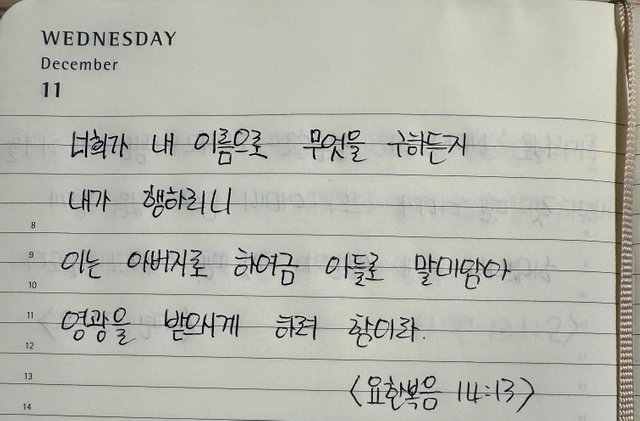 WEDNESDAY
December
11
너희가 내 이름으로 무엇을 구하든지
내가 행하리니
8
이는 아버지로 하여금 아들로 말미암아
9
10
영광을 받으시게 하려 함이라.
11
12
13
<요한복음 14:13>
14